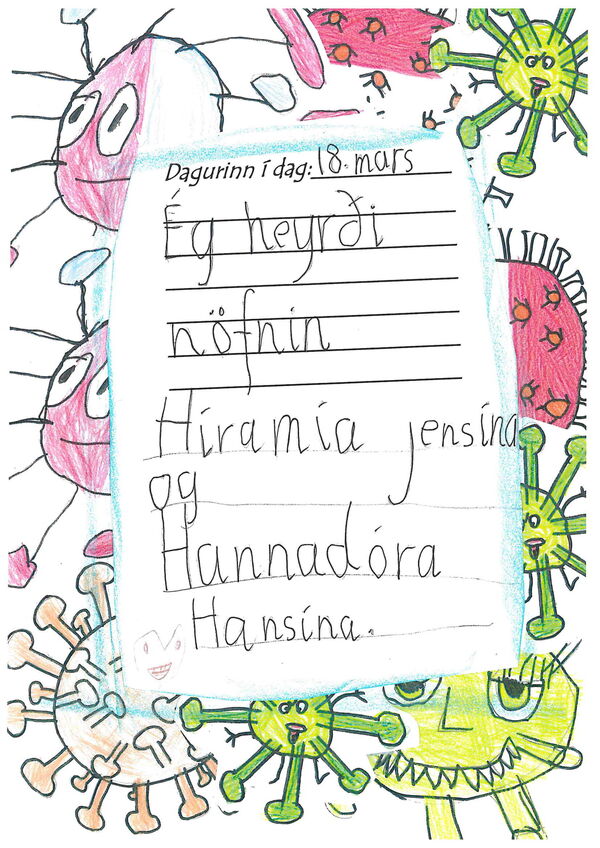 Dagurinn í dag: 18. mars
Ég heyrði
nöfnin
Híramía jensína
og
Hannadóra
Hansína.